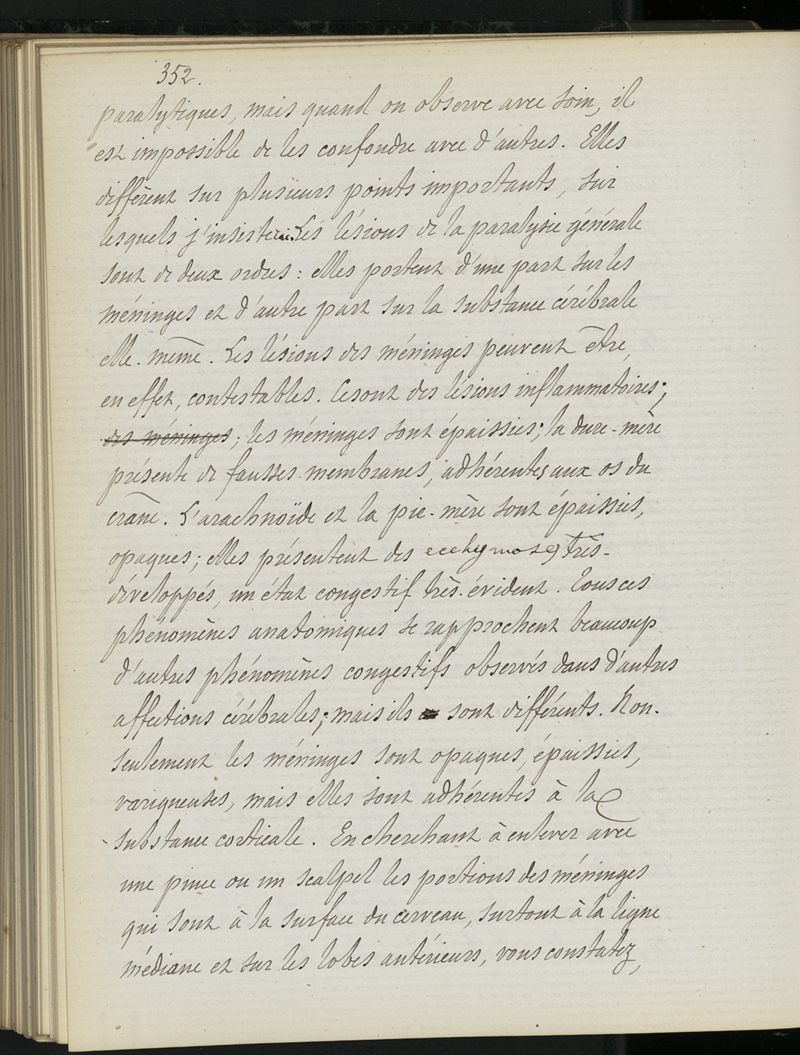 352.
paralytiques, mais quand on observe avec soin, il
est impossible de les confondre avec d'autres. Elles
diffèrent sur plusieurs points importants, sur
lesquels j'insisterai. Les lésions de la paralysie générale
sont de deux ordres : elles portent d'une part sur les
méninges et d'autre part sur la substance cérébrale
elle-même. Les lésions des méninges peuvent être,
en effet, contestables. Ce sont des lésions inflammatoires;
des méninges; les méninges sont épaissies; la dure-mère
présente de fausses-membranes, adhérentes aux os du
crâne. L'arachnoïde et la pie-mère sont épaissies,
opaques; elles présentent des ecchymoses très-
développés, un état congestif très-évident. Tous ces
phénomènes anatomiques se rapprochent beaucoup
d'autres phénomènes congestifs observés dans d'autres
affections cérébrales; mais ils sont différents. Non-
seulement les méninges sont opaques, épaissies,
varigueuses, mais elles sont adhérentes à la
substance corticale. En cherchant à enlever avec
une pince ou un scalpel les portions des méninges
qui sont à la surface du cerveau, surtout à la ligne
médiane et sur les lobes antérieurs, vous constatez,